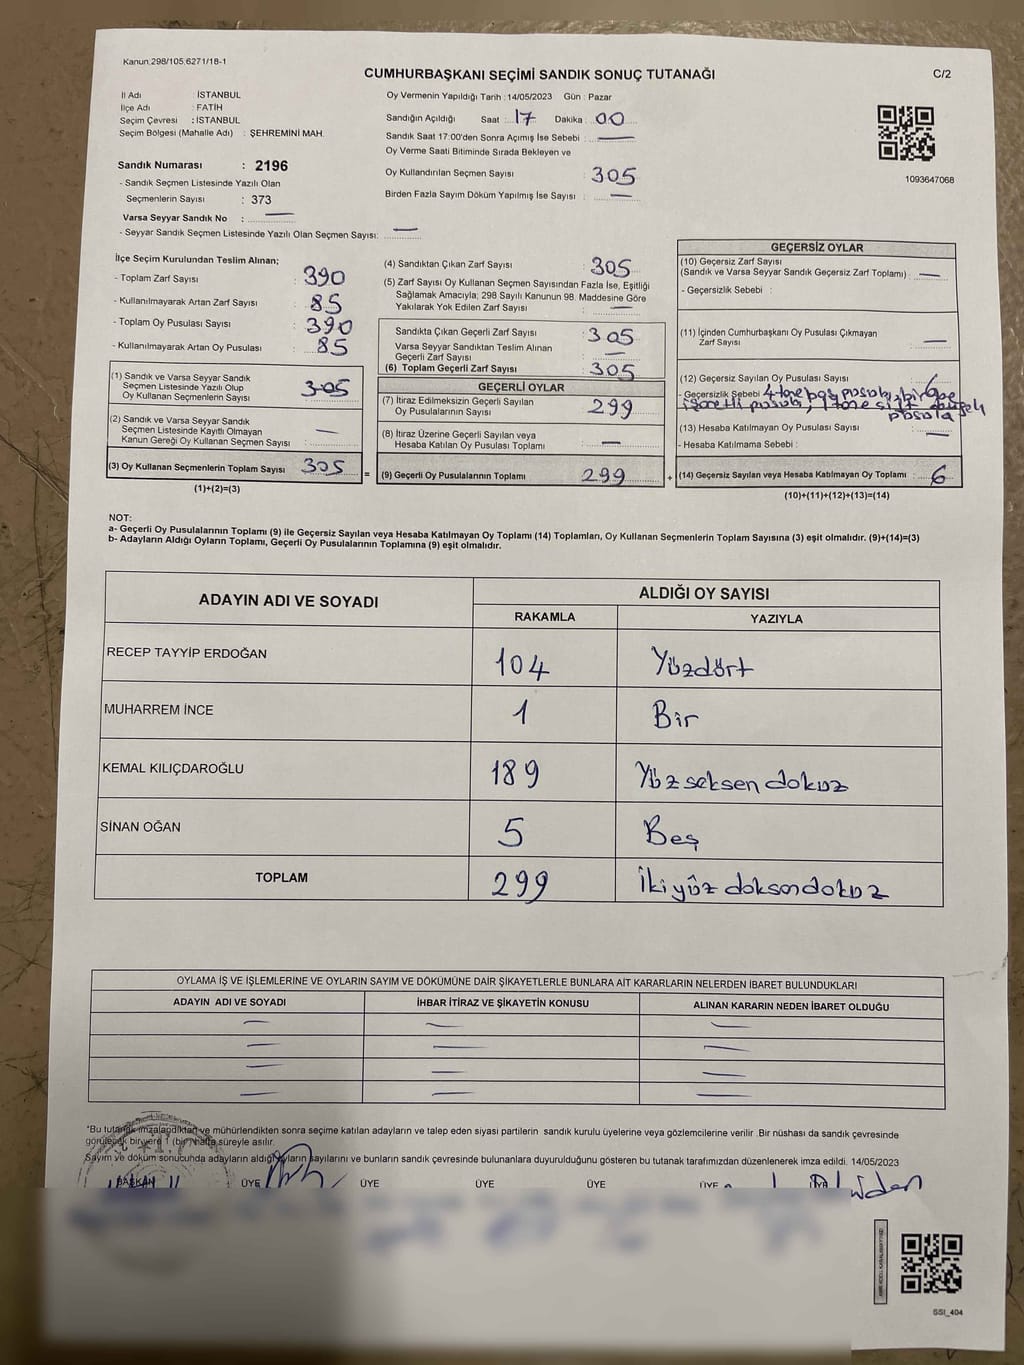 Kanun.298/105,6271/18-1
CUMHURBAŞKANI SEÇİMİ SANDIK SONUÇ TUTANAĞI
C/2
İl Adı : İSTANBUL
İlçe Adı : FATİH
Seçim Çevresi : İSTANBUL
Seçim Bölgesi (Mahalle Adı) : ŞEHREMİNİ MAH.
Sandık Numarası : 2196
- Sandık Seçmen Listesinde Yazılı Olan
Seçmenlerin Sayısı : 373
Varsa Seyyar Sandık No : —
- Seyyar Sandık Seçmen Listesinde Yazılı Olan Seçmen Sayısı: —
Oy Vermenin Yapıldığı Tarih : 14/05/2023 Gün : Pazar
Sandığın Açıldığı Saat : 17 Dakika : 00
Sandık Saat 17:00'den Sonra Açımış İse Sebebi : —
Oy Verme Saati Bitiminde Sırada Bekleyen ve
Oy Kullandırılan Seçmen Sayısı : 305
Birden Fazla Sayım Döküm Yapılmış İse Sayısı : —
1093647068
İlçe Seçim Kurulundan Teslim Alınan;
- Toplam Zarf Sayısı : 390
- Kullanılmayarak Artan Zarf Sayısı : 85
- Toplam Oy Pusulası Sayısı : 390
- Kullanılmayarak Artan Oy Pusulası : 85
(1) Sandık ve Varsa Seyyar Sandık
Seçmen Listesinde Yazılı Olup
Oy Kullanan Seçmenlerin Sayısı : 305
(2) Sandık ve Varsa Seyyar Sandık
Seçmen Listesinde Kayıtlı Olmayan
Kanun Gereği Oy Kullanan Seçmen Sayısı : —
(3) Oy Kullanan Seçmenlerin Toplam Sayısı : 305
(1)+(2)=(3)
(4) Sandıktan Çıkan Zarf Sayısı : 305
(5) Zarf Sayısı Oy Kullanan Seçmen Sayısından Fazla İse, Eşitliği
Sağlamak Amacıyla; 298 Sayılı Kanunun 98. Maddesine Göre
Yakılarak Yok Edilen Zarf Sayısı : —
Sandıkta Çıkan Geçerli Zarf Sayısı : 305
Varsa Seyyar Sandıktan Teslim Alınan
Geçerli Zarf Sayısı : —
(6) Toplam Geçerli Zarf Sayısı : 305
GEÇERLİ OYLAR
(7) İtiraz Edilmeksizin Geçerli Sayılan
Oy Pusulalarının Sayısı : 299
(8) İtiraz Üzerine Geçerli Sayılan veya
Hesaba Katılan Oy Pusulası Toplamı : —
= (9) Geçerli Oy Pusulalarının Toplamı : 299
GEÇERSİZ OYLAR
(10) Geçersiz Zarf Sayısı
(Sandık ve Varsa Seyyar Sandık Geçersiz Zarf Toplamı) : —
- Geçersizlik Sebebi :
(11) İçinden Cumhurbaşkanı Oy Pusulası Çıkmayan
Zarf Sayısı : —
(12) Geçersiz Sayılan Oy Pusulası Sayısı : 6
- Geçersizlik Sebebi : 4 tane boş pusula,
işaretli pusula, 1 tane
pusula
(13) Hesaba Katılmayan Oy Pusulası Sayısı : —
- Hesaba Katılmama Sebebi :
+ (14) Geçersiz Sayılan veya Hesaba Katılmayan Oy Toplamı : 6
(10)+(11)+(12)+(13)=(14)
NOT:
a- Geçerli Oy Pusulalarının Toplamı (9) ile Geçersiz Sayılan veya Hesaba Katılmayan Oy Toplamı (14) Toplamları, Oy Kullanan Seçmenlerin Toplam Sayısına (3) eşit olmalıdır. (9)+(14)=(3)
b- Adayların Aldığı Oyların Toplamı, Geçerli Oy Pusulalarının Toplamına (9) eşit olmalıdır.
ADAYIN ADI VE SOYADI ALDIĞI OY SAYISI
RAKAMLA YAZIYLA
RECEP TAYYİP ERDOĞAN 104 Yüzdört
MUHARREM İNCE 1 Bir
KEMAL KILIÇDAROĞLU 189 Yüz seksen dokuz
SİNAN OĞAN 5 Beş
TOPLAM 299 İki yüz doksan dokuz
OYLAMA İŞ VE İŞLEMLERİNE VE OYLARIN SAYIM VE DÖKÜMÜNE DAİR ŞİKAYETLERLE BUNLARA AİT KARARLARIN NELERDEN İBARET BULUNDUKLARI
ADAYIN ADI VE SOYADI İHBAR İTİRAZ VE ŞİKAYETİN KONUSU ALINAN KARARIN NEDEN İBARET OLDUĞU
— — —
— — —
— — —
— — —
*Bu tutanak imzalandıktan ve mühürlendikten sonra seçime katılan adayların ve talep eden siyasi partilerin sandık kurulu üyelerine veya gözlemcilerine verilir .Bir nüshası da sandık çevresinde
görülecek bir yere 1 (bir) hafta süreyle asılır.
Sayım ve döküm sonucunda adayların aldığı oyların sayılarını ve bunların sandık çevresinde bulunanlara duyurulduğunu gösteren bu tutanak tarafımızdan düzenlenerek imza edildi. 14/05/2023
BAŞKAN ÜYE ÜYE ÜYE ÜYE ÜYE
SSI_404